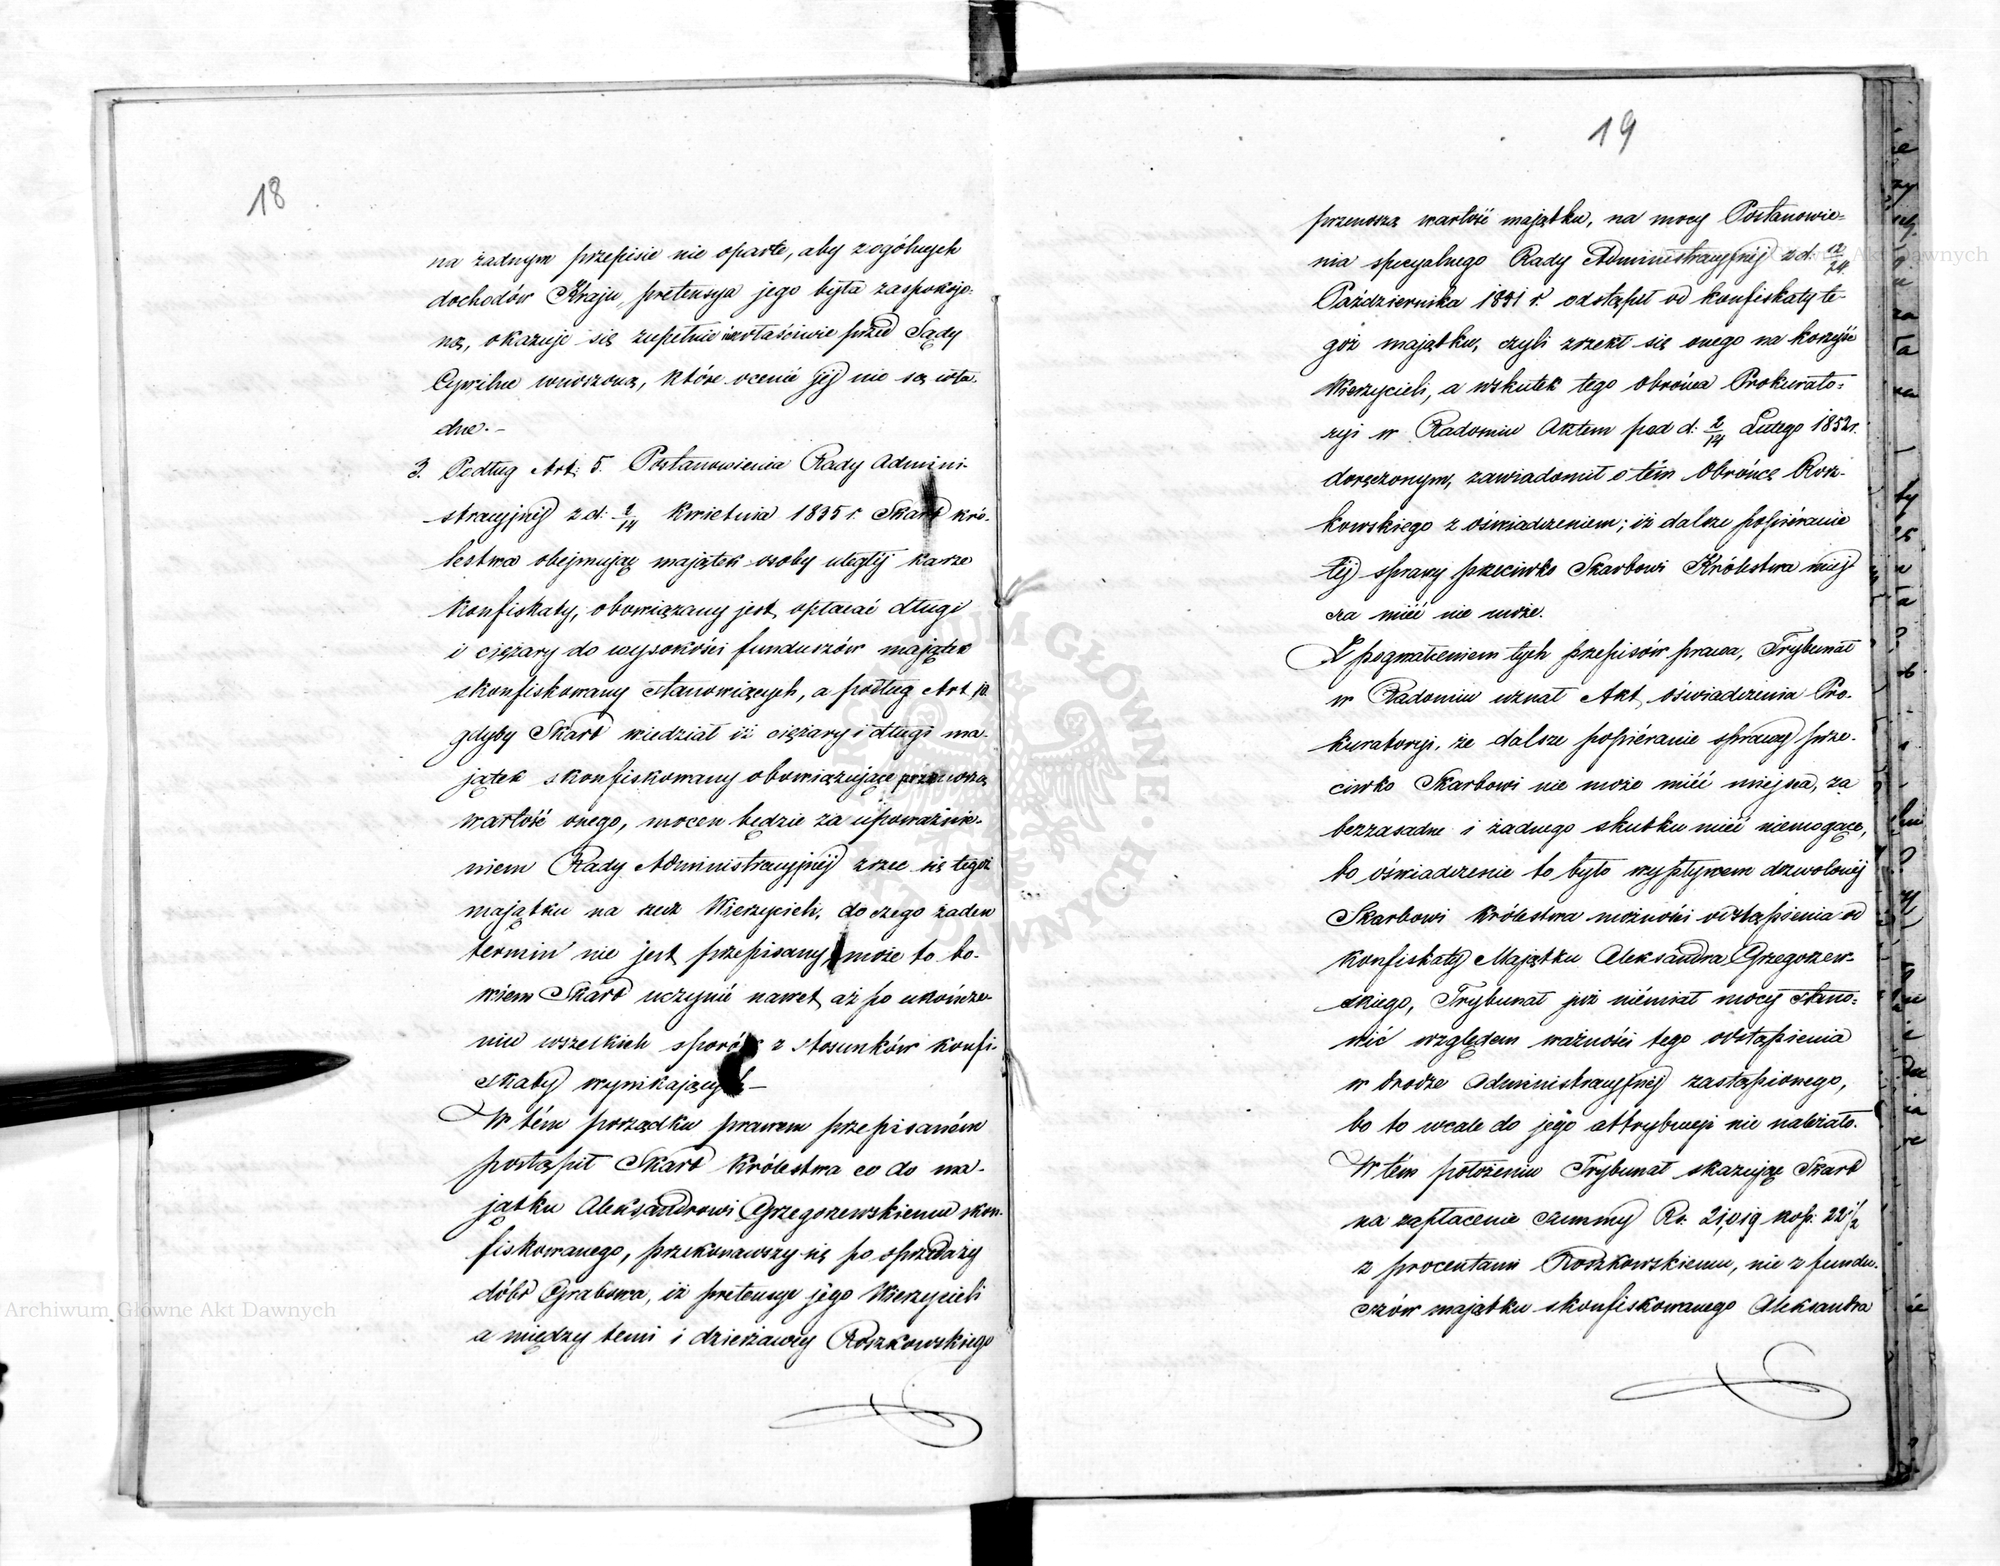 18
na żadnym przepisie nie oparte, aby z ogólnych
dochodów Kraju, pretensya jego była zaspokojo-
ną, okazuje się zupełnie niewłaściwie przed Sądy
Cywilne wnoszoną, które ocenić jej nie są wła-
dne.-
3. Podług Art: 5. Postanowienia Rady Admini-
stracyjnej z d: 2/14 Kwietnia 1835 r. Skarb Kró-
lestwa obejmując majątek osoby uległej karze
Konfiskaty, obowiązany jest opłacać długi
i ciężary do wysokości funduszów majątek
skonfiskowany stanowiących, a podług Art. 10.
gdyby Skarb wiedział iż ciężary i długi ma-
jątek skonfiskowany obowiązujące przenoszą
wartość onego, mocen będzie za upoważnie-
niem Rady Administracyjnej zrzec się tegoż
majątku na rzecz Wierzycieli, do czego żaden
termin nie jest przepisany, może to bo-
wiem Skarb uczynić nawet aż po ukończe-
niu wszelkich sporów z stosunków konfi-
skaty wynikających-
W tém porządku prawem przepisaném
postąpił Skarb Królestwa co do ma-
jątku Aleksandrowi Grzegorzewskiemu skon-
fiskowanego, przekonawszy się po sprzedaży
dóbr Grabowa, iż pretensye jego Wierzycieli
a między temi i dzierżawcy Roszkowskiego
19
przenoszą wartość majątku, na mocy Postanowie-
nia specyalnego Rady Administracyjnej z d. 12/24
Października 1851 r. odstąpił od konfiskaty te-
goż majątku, czyli zrzekł się onego na korzyść
Wierzycieli, a wskutek tego Obrońca Prokurato-
ryi w Radomiu Aktem pod d: 2/14 Lutego 1852 r.
doręczonym, zawiadomił o tém Obrońcę Rosz-
kowskiego z oświadczeniem, iż dalsze popiéranie
téj sprawy przeciwko Skarbowi Królestwa miej-
sca mieć nie może.
Z pogwałceniem tych przepisów prawa, Trybunał
w Radomiu uznał Akt oświadczenia Pro-
kuratoryi, że dalsze popiéranie sprawy prze-
ciwko Skarbowi nie może mieć miejsca, za
bezzasadne i żadnego skutku mieć niemogące,
bo oświadczenie to było wypływem dozwolonéj
Skarbowi Królestwa możności odstąpienia od
konfiskaty Majątku Aleksandra Grzegorzew-
skiego, Trybunał już niémiał mocy stano-
wić względem ważności tego odstąpienia
w drodze Administracyjnéj zastąpionego,
bo to wcale do jego attrybucyi nie należało.
W tem położeniu Trybunał skazując Skarb
na zapłacenie Summy Rs. 21,019 kop. 22 1/2
z procentami Roszkowskiemu, nie z fundu-
szów majątku skonfiskowanego Aleksandra
Archiwum Główne Akt Dawnych